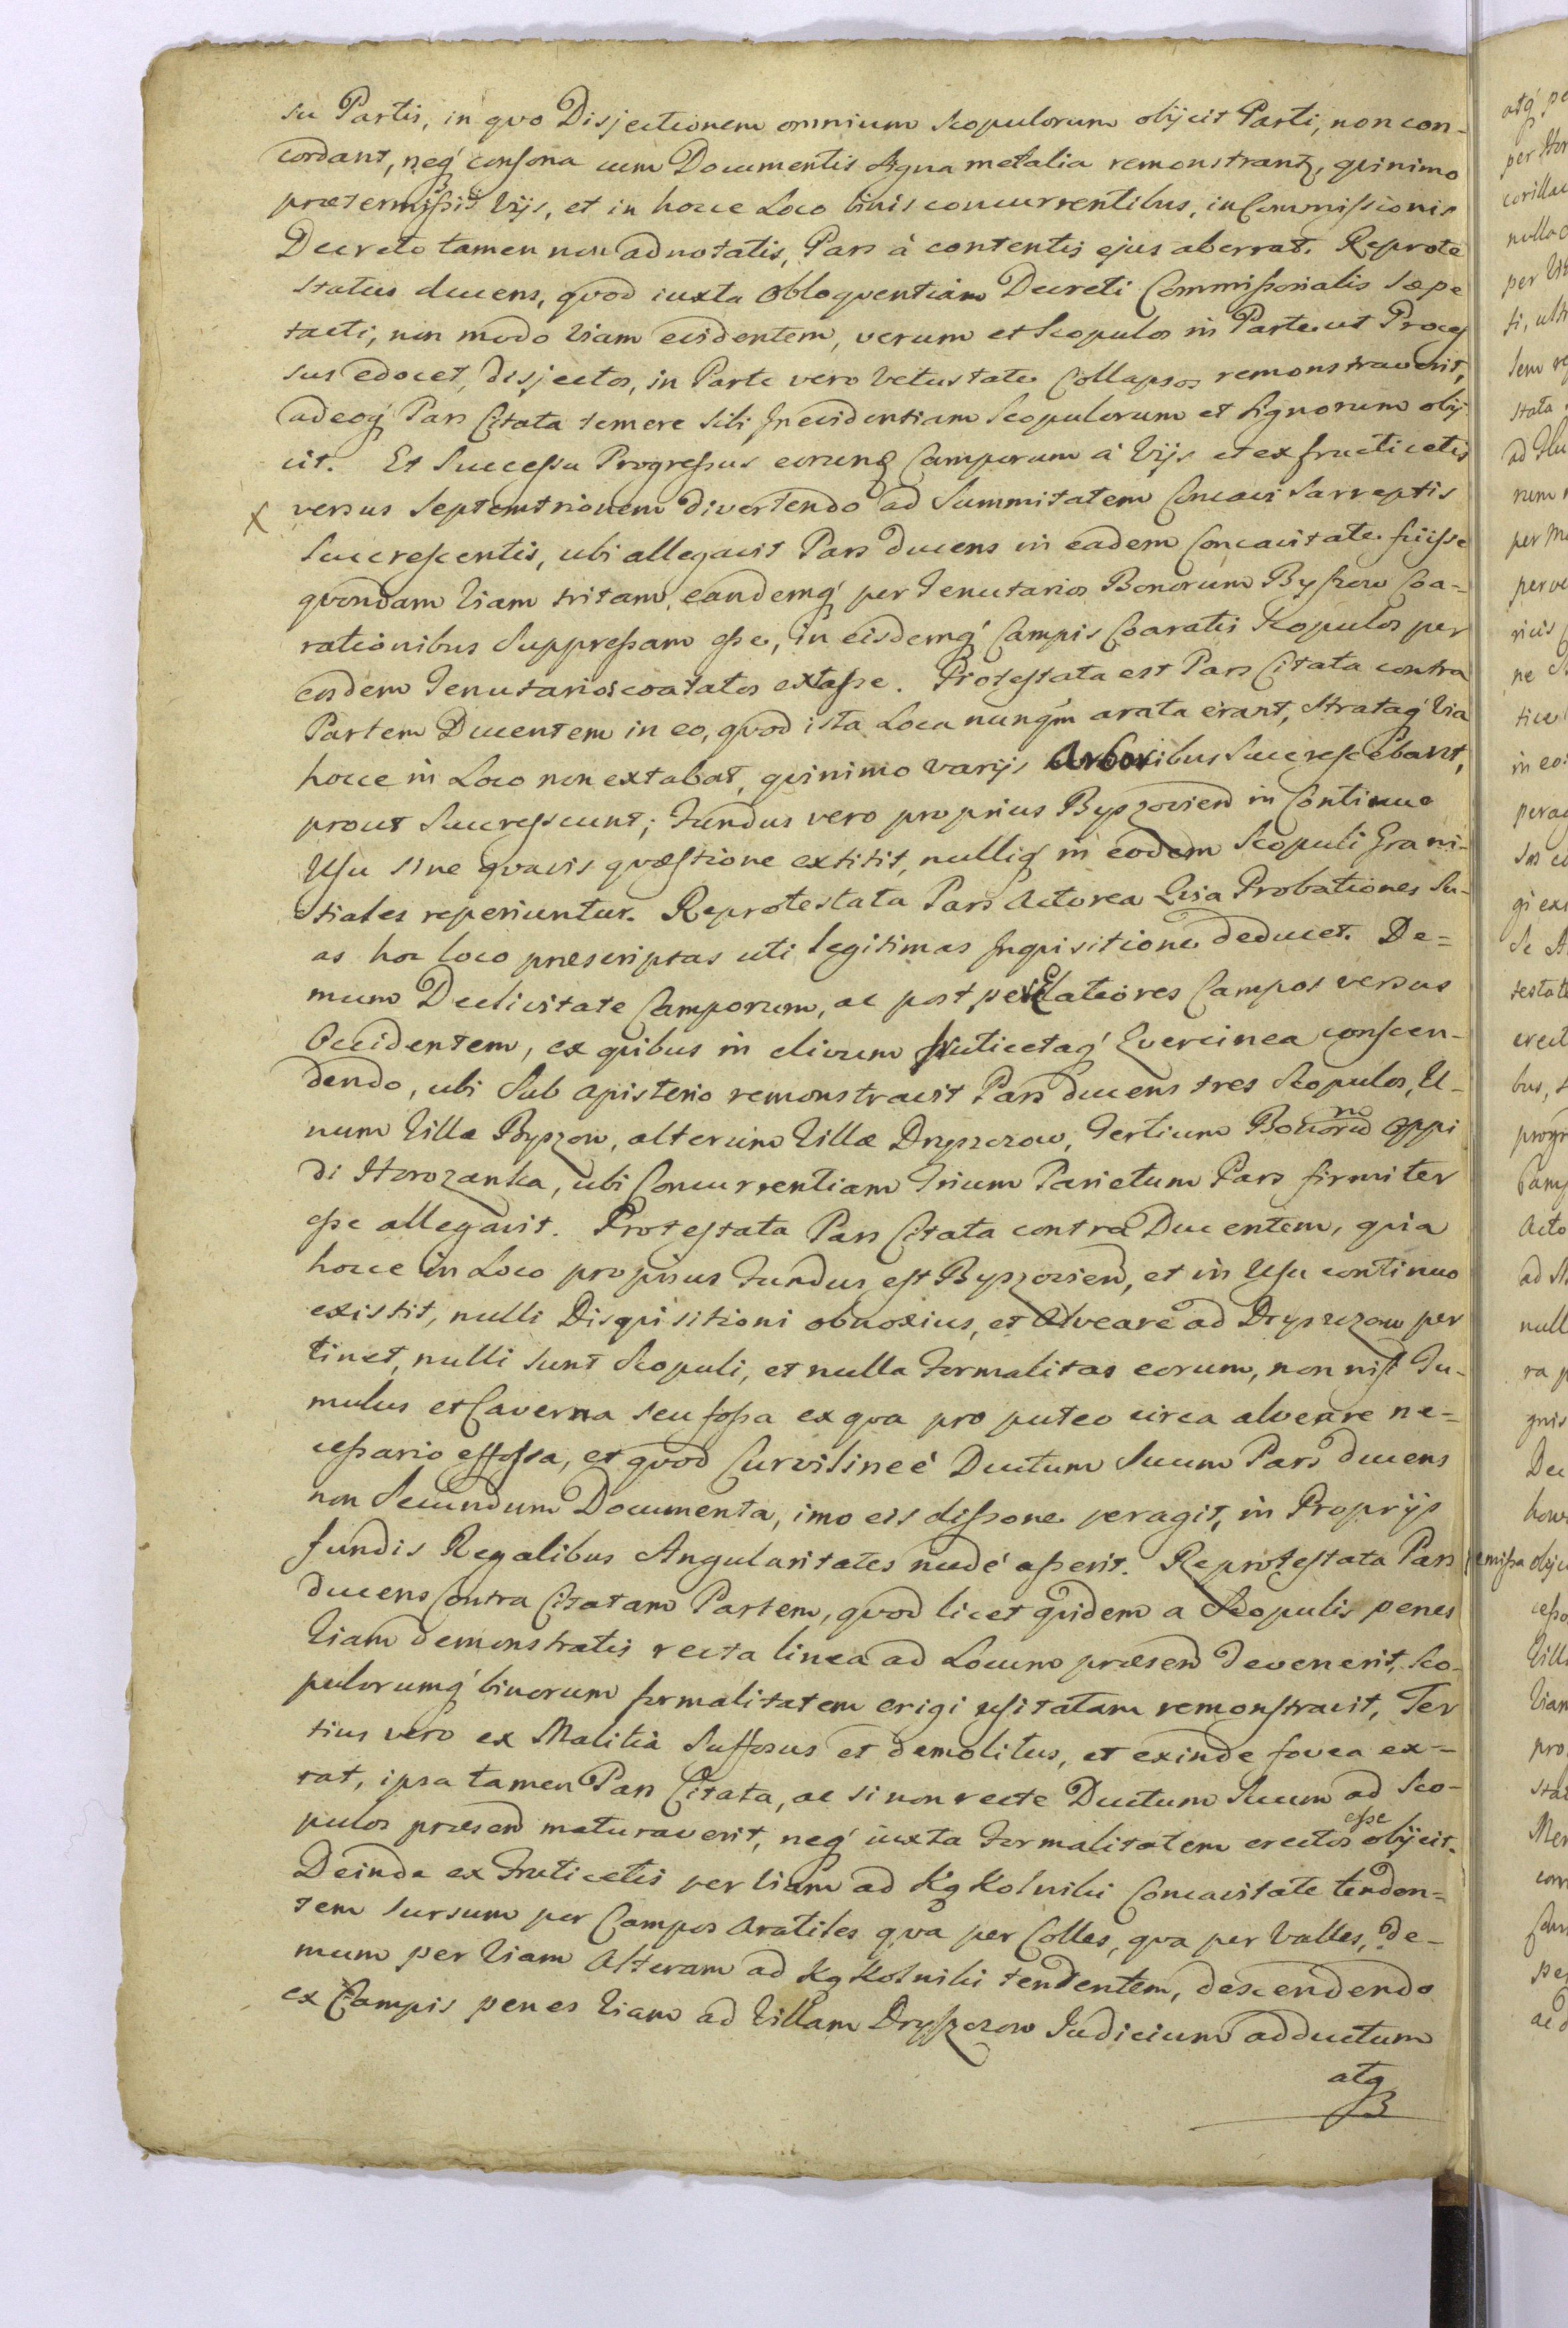 su Partis, in qvo Disjectionem omnium Scopulorum objicit Parti, non con-
cordant, neq́ consona cum Documentis Signa metalia remonstrant, qvinimo
prætermissis Vijs, et in hocce Loco binis concurrentibus, in Commissionis
Decreto tamen non adnotatis, Pars à contentis ejus aberrat. Reprote
status ducens, qvod iuxta Obloqventiam Decreti Commissorialis Sæpe
tacti, non modo Viam evidentem, verum et Scopulos in Parte ut Proces
sus edocet, disjectos, in Parte vero Vetustate Collapsos remonstraverit,
adeoq́ Pars Citata temere Sibi Inevidentiam Scopulorum et Signorum obij
cit. Et Successu Progressus eorunḍ Camporum à Vijs et ex fructicetis
X versus Septemtrionem divertendo ad Summitatem Concavi Sarreptis
Succrescentis, ubi allegavit Pars ducens in eadem Concavitate fuisse
qvondam Viam tritam, eandemq́ per Tenutarios Bonorum Byszow Coa-
rationibus Suppressam esse, in eisdemq́ Campis Coaratis Scopulos per
eosdem Tenutarios coaratos extasse. Protestata est Pars Citata contra
Partem Ducentem in eo, qvod ista Loca nunqḿ arata erant, Strataq́ Via
hocce in Loco non extabat, qvinimo varijs Arboribus Succrescebant,
prout Succrescunt; Fundus vero proprius Byszovien in Continuo
Usu sine qvavis qvæstione extitit, nulliq́ in eodem Scopuli Grani-
tiales reperiuntur. Reprotestata Pars Actorea Qvia Probationes Su-
as hoc loco præscriptas uti legitimas Inqvisitione deducet. De=
mum Declivitate Camporum, ac post per latiores Campos versus
Occidentem, ex qvibus in clivum fruticetaq́ Qvercinea conscen-
dendo, ubi Sub apisterio remonstravit Pars ducens tres Scopulos, U-
num Villæ Byszow, alterum Villæ Dryszczow, Tertium Bonorum Oppi
di Horozanka, ubi Concurrentiam Trium Parietum Pars firmiter
esse allegavit. Protestata Pars Citata contra Ducentem, qvia
hocce in Loco proprius Fundus est Byszovien, et in Usu continuo
existit, nulli Disqvisitioni obnoxius, et Alveare ad Dryszczow per
tinet, nulli sunt Scopuli, et nulla Formalitas eorum, non nisi Tu-
mulus et Caverna seu fossa ex qva pro puteo circa alveare ne=
cessario effossa, et qvod Curvilineé Ductum Suum Pars ducens
non Secundum Documenta, imo eis dissone peragit, in Proprijs
fundis Regalibus Angularitates nudé asserit. Reprotestata Pars præmissa
ducens Contra Citatam Partem, qvod licet qvidem a Scopulis penes
Viam demonstratis recta linea ad Locum præsen devenerit, Sco-
pulorumq́ binorum formalitatem erigi usitatam remonstravit, Ter
tius vero ex Malitia Suffosus et demolitus, et exinde fovea ex-
tat, ipsa tamen Pars Citata, ac si non recte Ductum Suum ad Sco-
pulos præsen maturaverit, neq́ iuxta Formalitatem erectos esse objicit.
Deinde ex Fruticetis per Viam ad Kąkolniki Concavitate tenden=
tem sursum per Campos Aratiles qva per Colles, qva per Valles, De-
mum per Viam Alteram ad Kąkolniki tendentem, descendendo
ex Campis penes Viam ad Villam Dryszczow Iudicium adductum
atq